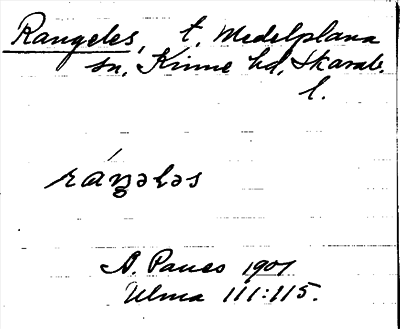 Rangeles, t. Medelplana
sn, Kinne hd, Skarab.
l.
ráŋələs
A. Paues 1901
Ulma 111:115.